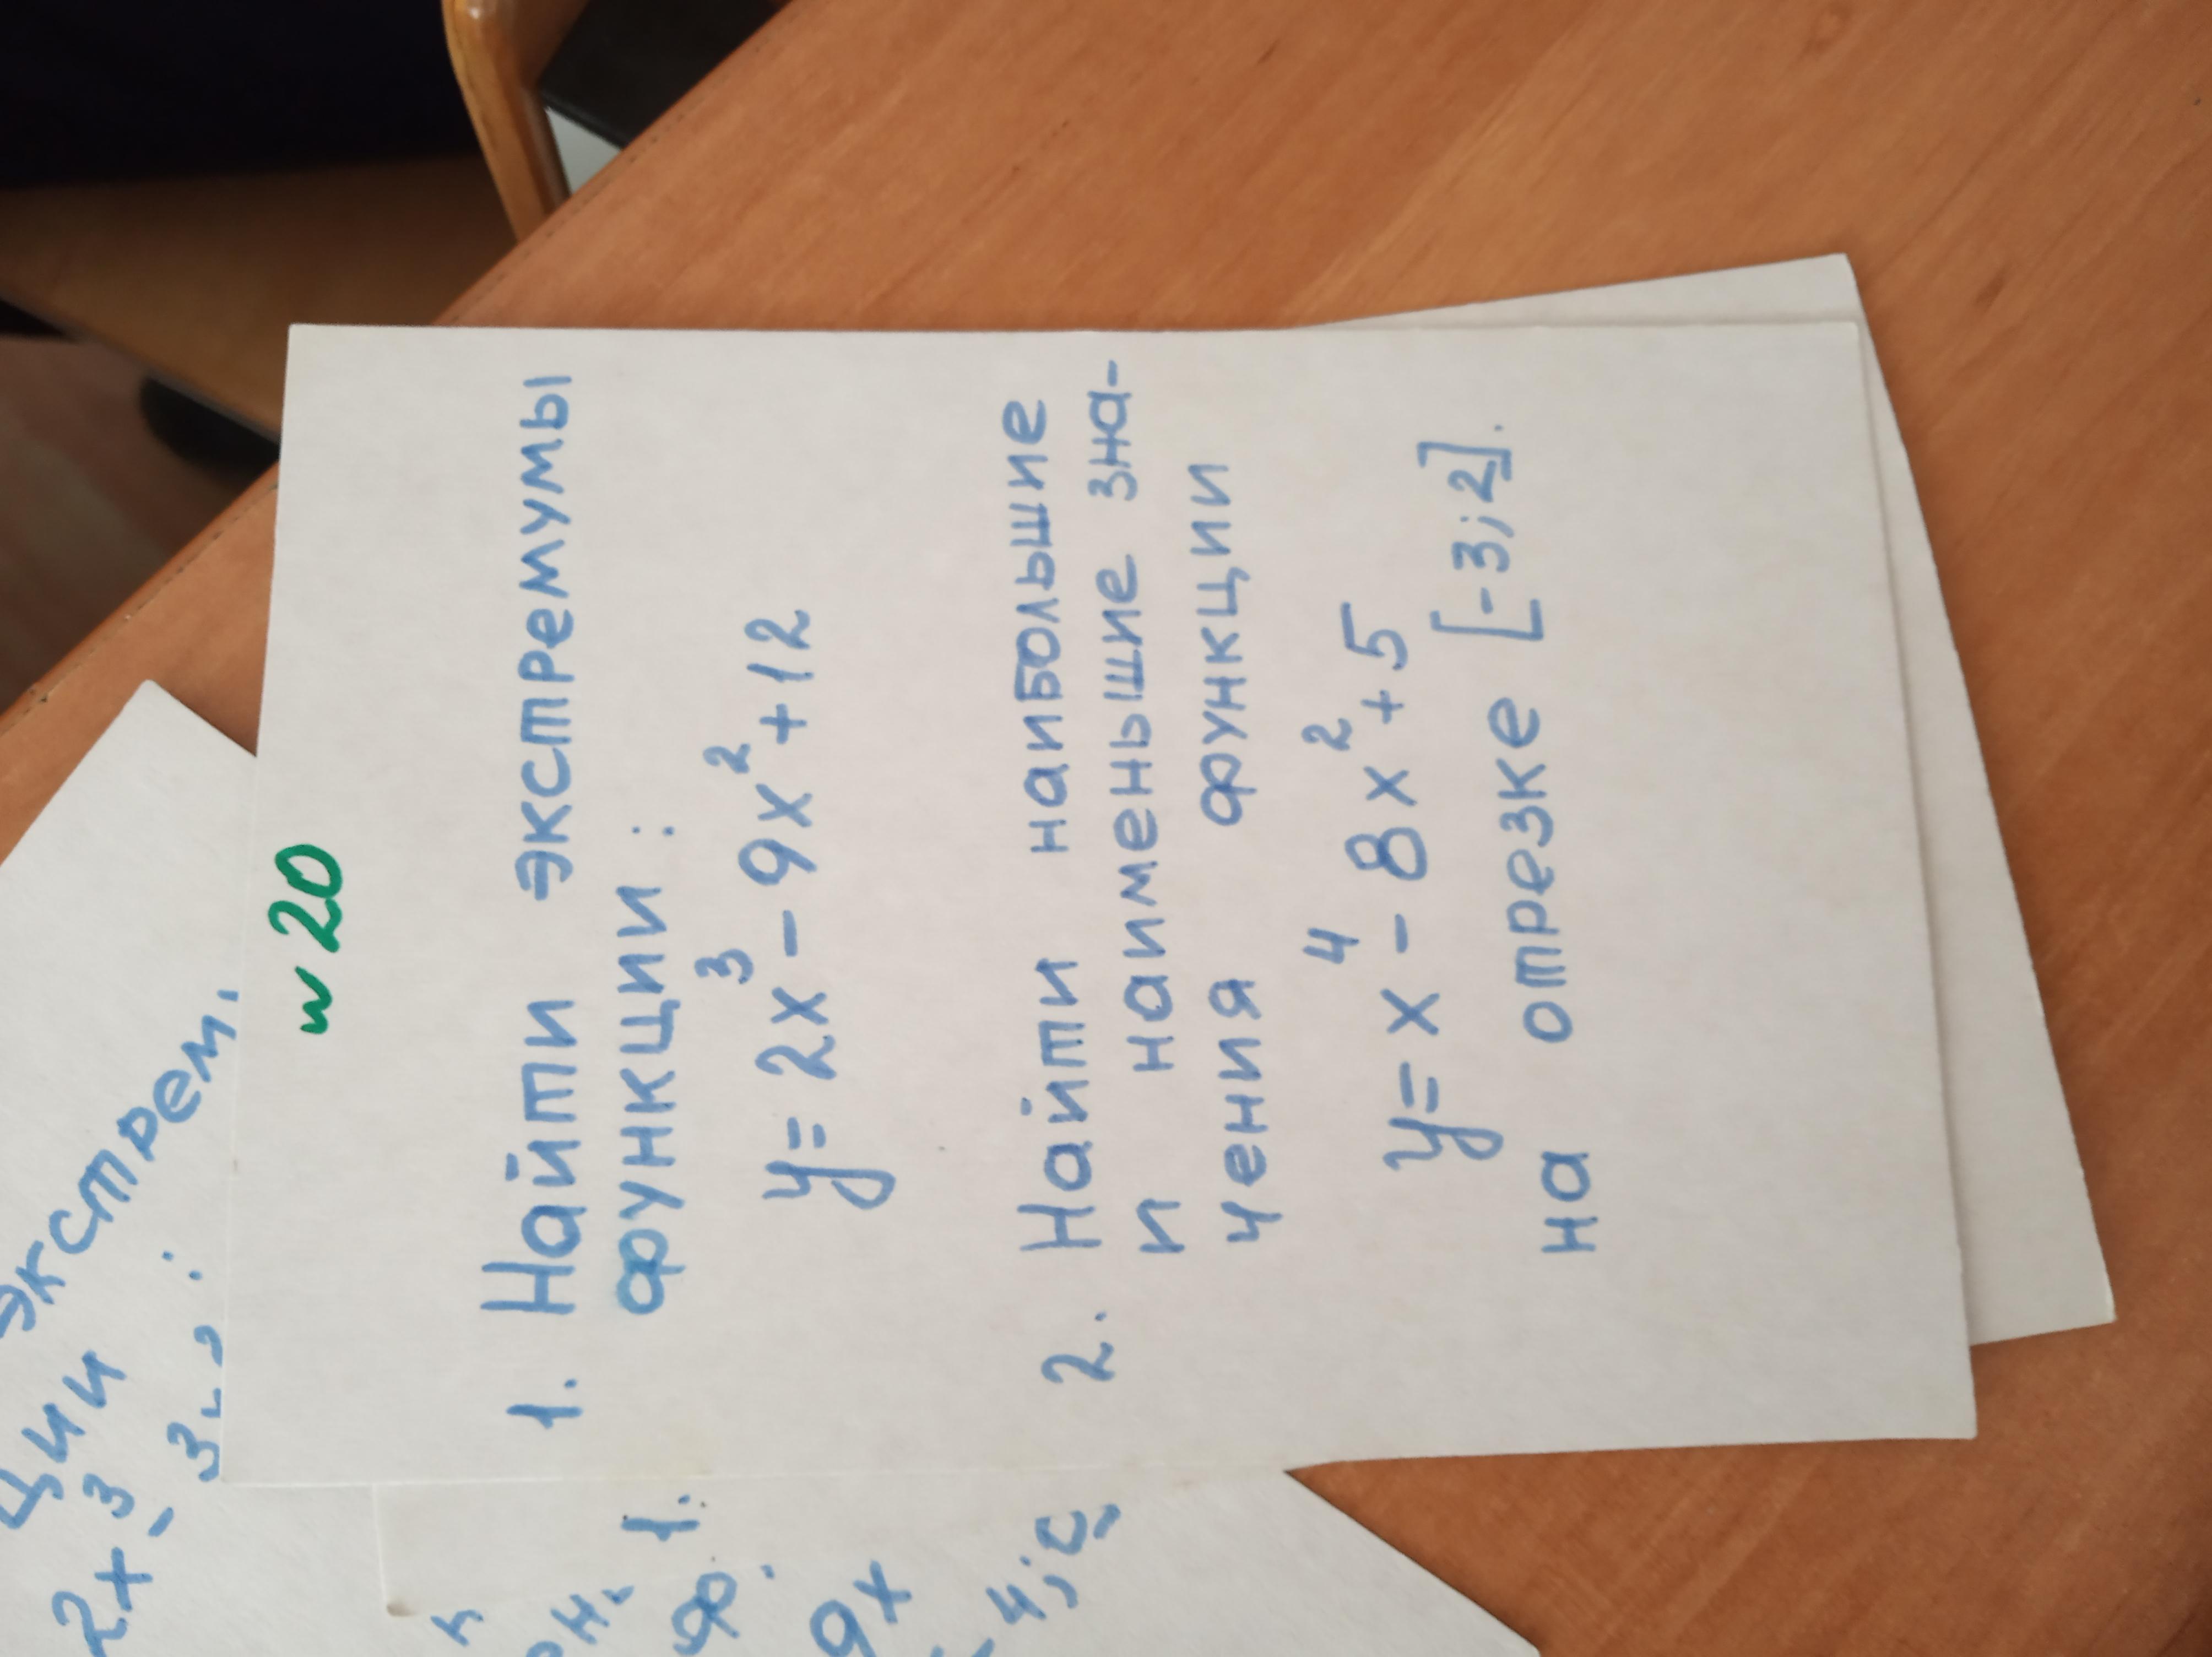 № 20
1. Найти экстремумы
функции:
y = 2x³ - 9x² + 12
2. Найти наибольшие
и наименьшие зна-
чения функции
y = x⁴ - 8x² + 5
на отрезке [-3; 2].
экстрем.
ции